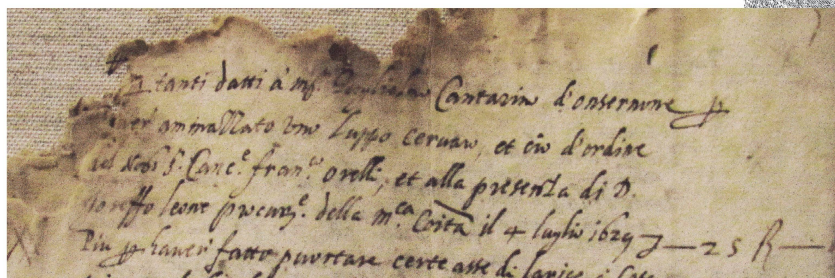 tanti datti á mr. Cantarin d'onsernone p
haver' ammallato vno luppo ceruaro, et ciò d'ordine
del Nobe Sr. Cance. franco. orelli, et alla presenza di D.
leone procure. della mca. Coita il 4 luglio 1629 — 25 R —
Piu p haver' fatto puortare certe asse di larice